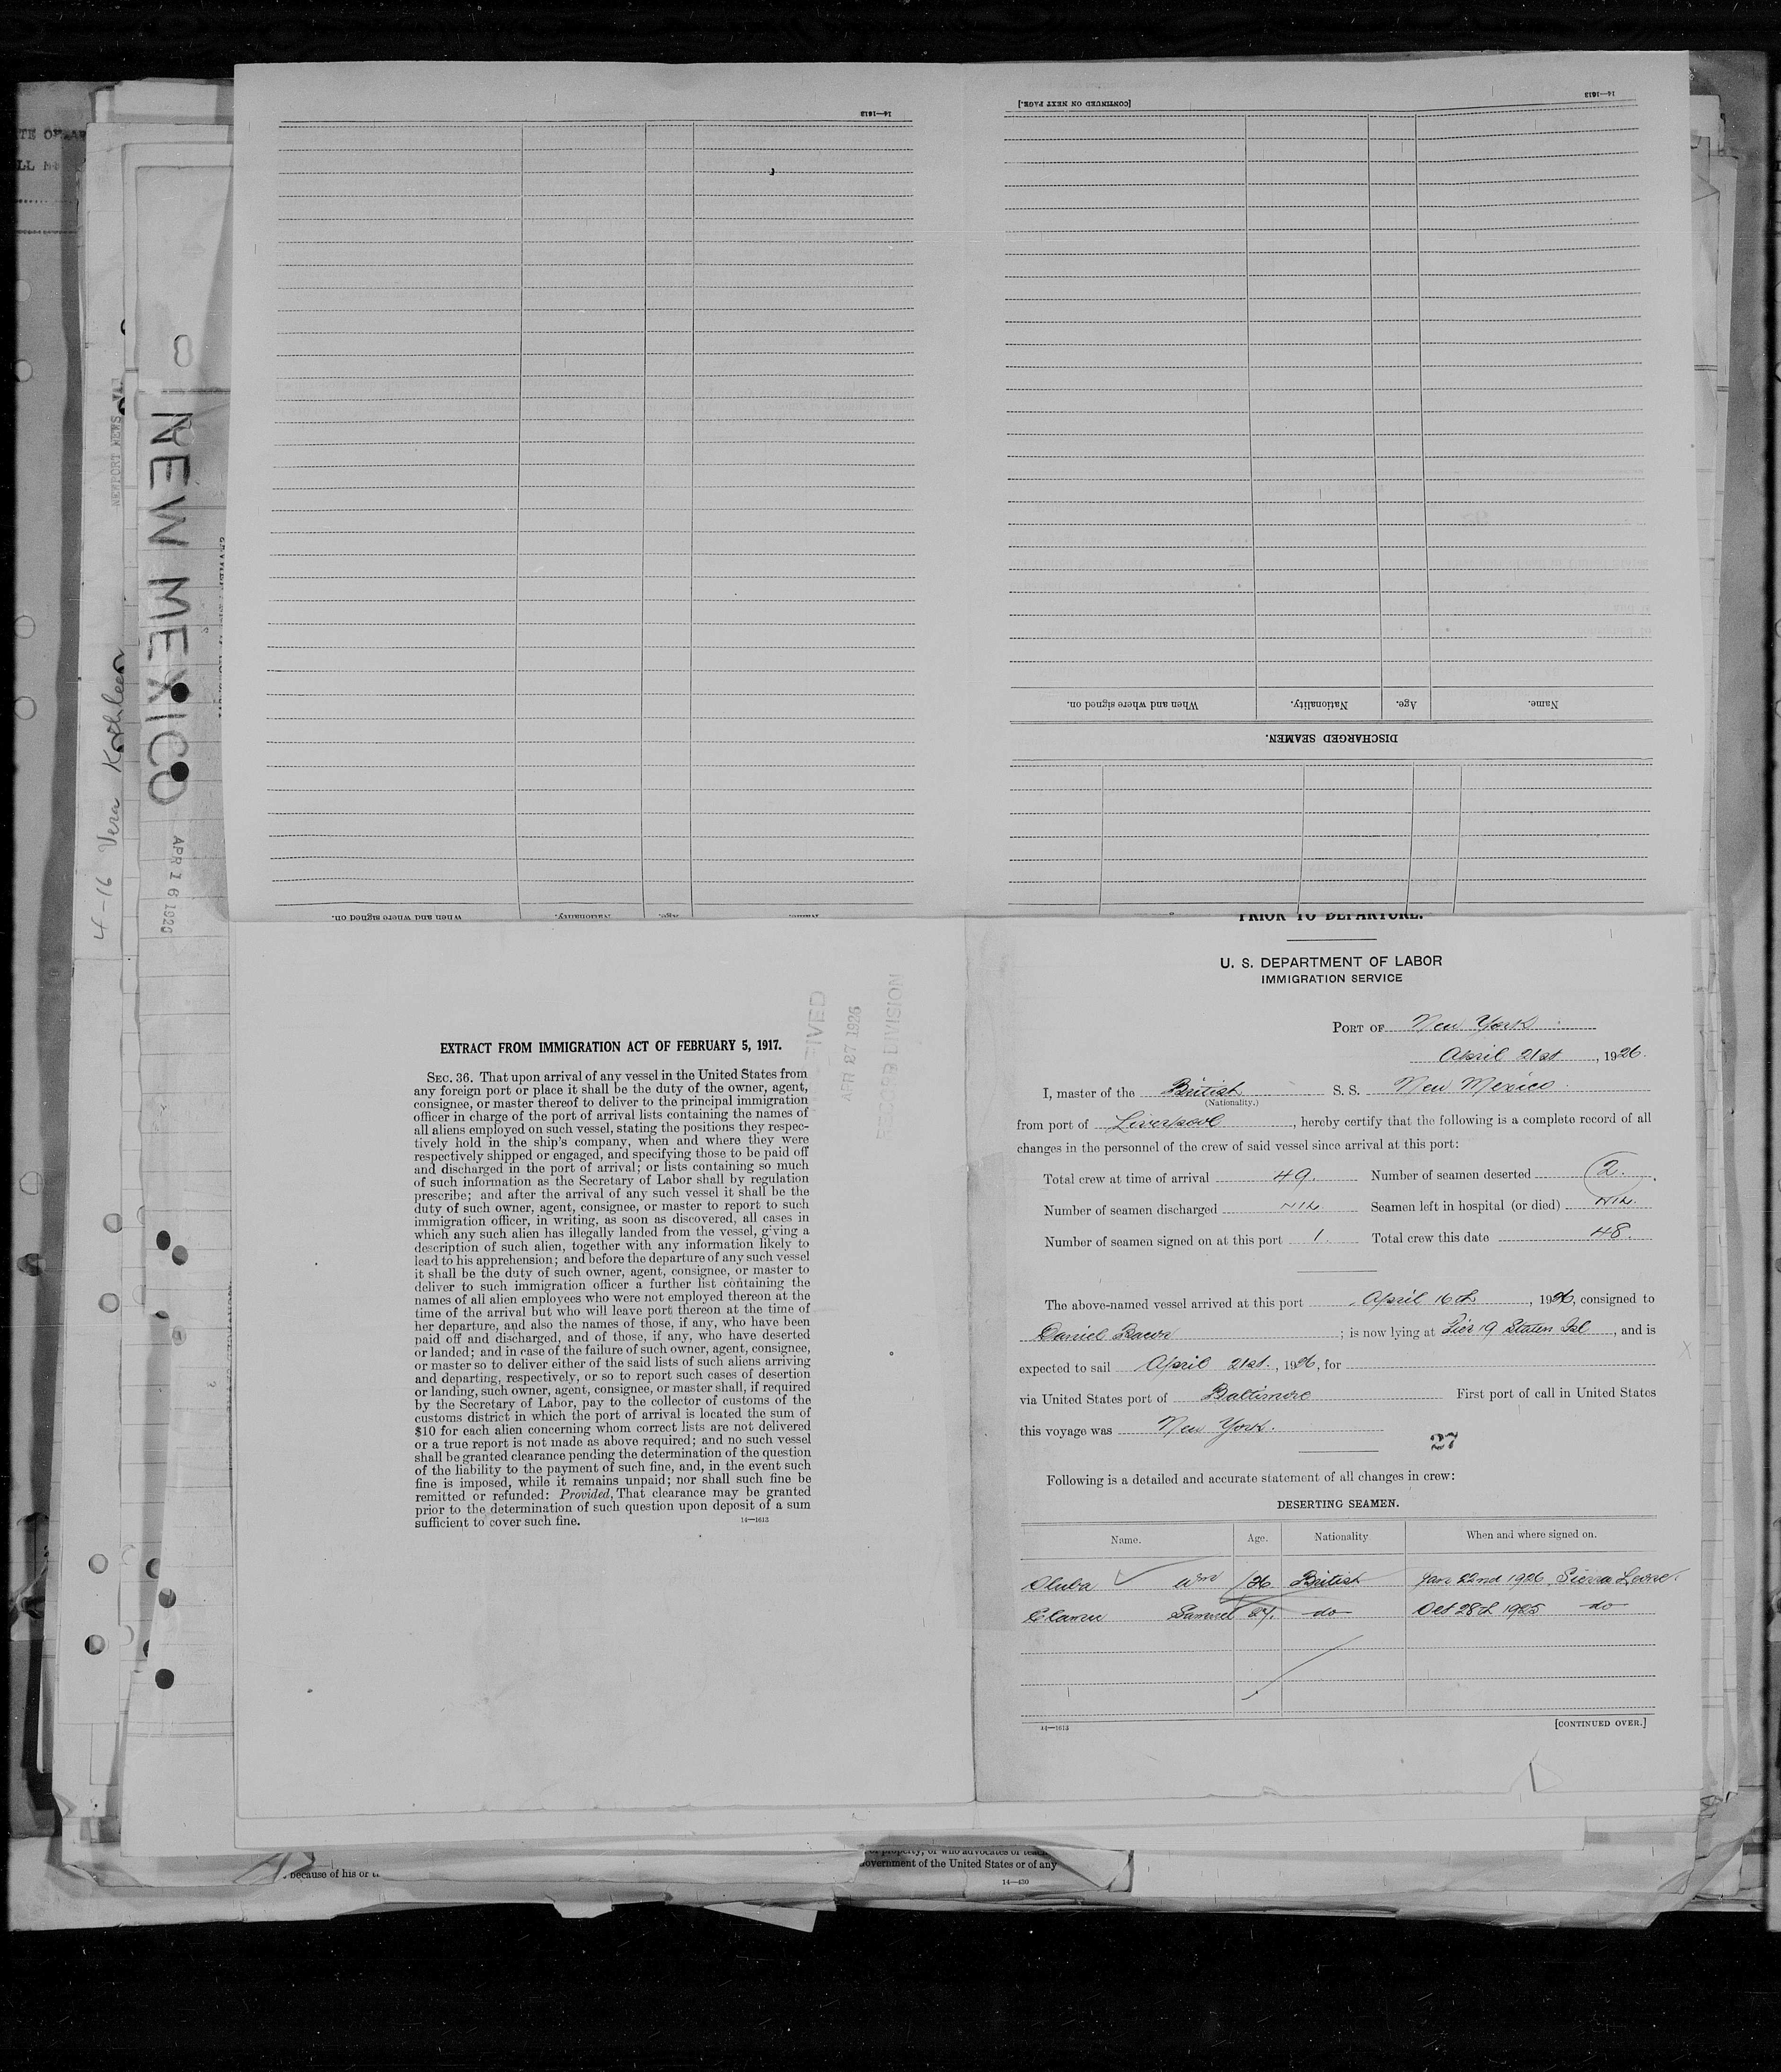 14—1613
[CONTINUED ON NEXT PAGE.]
14—1613
When and where signed on.
Nationality.
Age.
Name.
DISCHARGED SEAMEN.
When and where signed on.
Nationality.
Age.
Name.
NEWPORT NEWS
4-16 Vera Kathleen
NEW MEXICO
APR 16 192
APR 27 1926
DIVISION
EXTRACT FROM IMMIGRATION ACT OF FEBRUARY 5, 1917.
SEC. 36. That upon arrival of any vessel in the United States from
any foreign port or place it shall be the duty of the owner, agent,
consignee, or master thereof to deliver to the principal immigration
officer in charge of the port of arrival lists containing the names of
all aliens employed on such vessel, stating the positions they respec-
tively hold in the ship's company, when and where they were
respectively shipped or engaged, and specifying those to be paid off
and discharged in the port of arrival; or lists containing so much
of such information as the Secretary of Labor shall by regulation
prescribe; and after the arrival of any such vessel it shall be the
duty of such owner, agent, consignee, or master to report to such
immigration officer, in writing, as soon as discovered, all cases in
which any such alien has illegally landed from the vessel, giving a
description of such alien, together with any information likely to
lead to his apprehension; and before the departure of any such vessel
it shall be the duty of such owner, agent, consignee, or master to
deliver to such immigration officer a further list containing the
names of all alien employees who were not employed thereon at the
time of the arrival but who will leave port thereon at the time of
her departure, and also the names of those, if any, who have been
paid off and discharged, and of those, if any, who have deserted
or landed; and in case of the failure of such owner, agent, consignee,
or master so to deliver either of the said lists of such aliens arriving
and departing, respectively, or so to report such cases of desertion
or landing, such owner, agent, consignee, or master shall, if required
by the Secretary of Labor, pay to the collector of customs of the
customs district in which the port of arrival is located the sum of
$10 for each alien concerning whom correct lists are not delivered
or a true report is not made as above required; and no such vessel
shall be granted clearance pending the determination of the question
of the liability to the payment of such fine, and, in the event such
fine is imposed, while it remains unpaid; nor shall such fine be
remitted or refunded: Provided, That clearance may be granted
prior to the determination of such question upon deposit of a sum
sufficient to cover such fine. 14—1613
PRIOR TO DEPARTURE.
U. S. DEPARTMENT OF LABOR
IMMIGRATION SERVICE
PORT OF New York
April 21st, 1926.
I, master of the British S. S. New Mexico
(Nationality.)
from port of Liverpool, hereby certify that the following is a complete record of all
changes in the personnel of the crew of said vessel since arrival at this port:
Total crew at time of arrival 49. Number of seamen deserted 2.
Number of seamen discharged NIL Seamen left in hospital (or died) NIL.
Number of seamen signed on at this port 1. Total crew this date 48.
The above-named vessel arrived at this port April 16th, 1926, consigned to
Daniel Bacon; is now lying at Pier 19 Staten Isl, and is
expected to sail April 21st., 1926, for
via United States port of Baltimore First port of call in United States
this voyage was New York.
27
Following is a detailed and accurate statement of all changes in crew:
DESERTING SEAMEN.
Name. Age. Nationality When and where signed on.
Oluba Wm 26 British Jan 22nd 1926, Sierra Leone.
Samuel 27. do Oct 28th 1925 do
14—1613 [CONTINUED OVER.]
because of his or
of property, or who advocates or teach
Government of the United States or of any
14—430